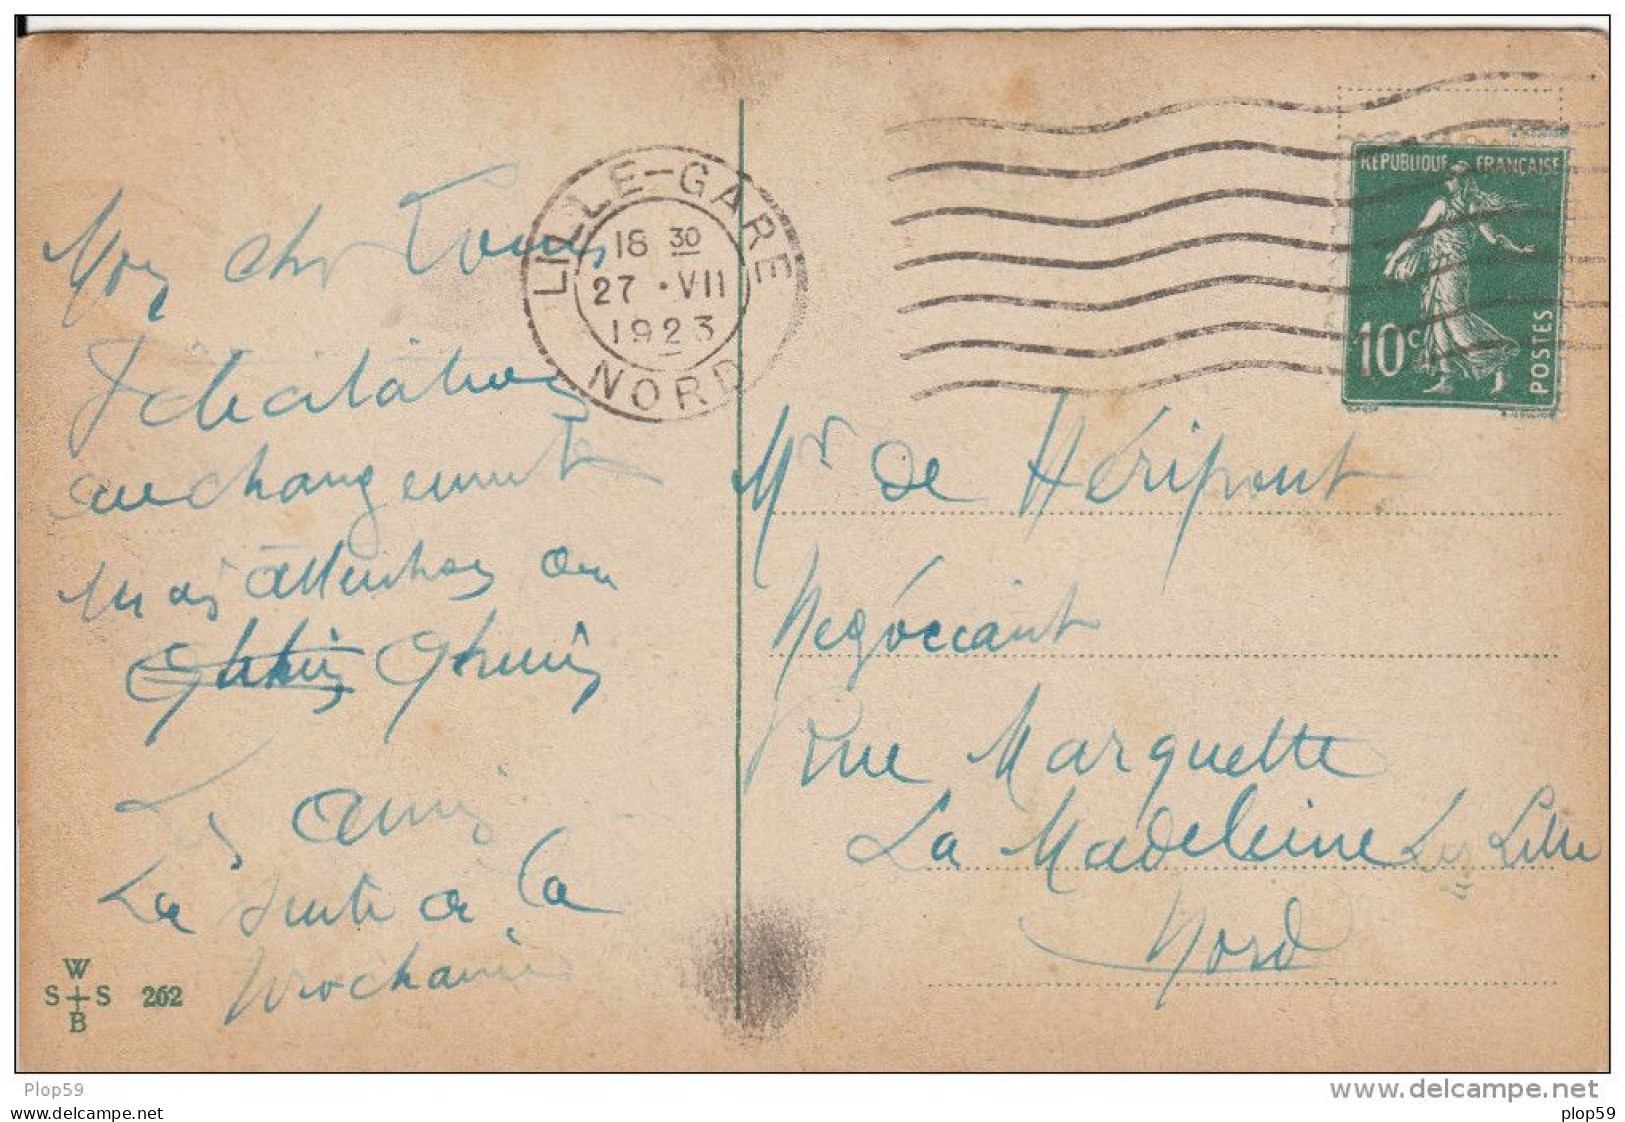 Mon cher
Félicitations
au changement
Mais attention au
Les amis
La suite à la
prochaine
W
S S
B
262
LILLE-GARE
18 30
27 • VII
1923
NORD
REPUBLIQUE FRANÇAISE
10c
POSTES
Mr de Héripont
Négociant
Rue Marquette
La Madeleine Les Lille
Nord
Plop59
www.delcampe.com
www.delcampe.net
plop59